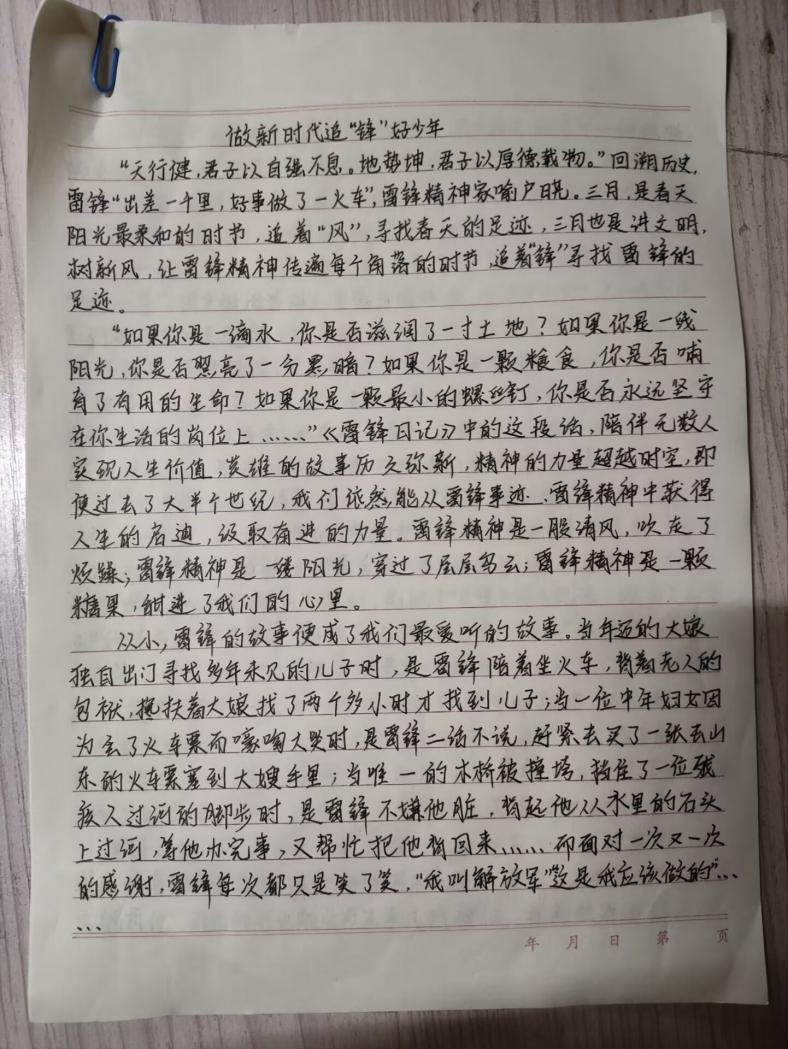 做新时代追“锋”好少年
“天行健，君子以自强不息。地势坤，君子以厚德载物。”回溯历史，
雷锋“出差一千里，好事做了一火车”，雷锋精神家喻户晓。三月，是春天
阳光最柔和的时节，追着“风”，寻找春天的足迹，三月也是讲文明，
树新风，让雷锋精神传遍每个角落的时节，追着“锋”寻找雷锋的
足迹。
“如果你是一滴水，你是否滋润了一寸土地？如果你是一线
阳光，你是否照亮了一分黑暗？如果你是一颗粮食，你是否哺
育了有用的生命？如果你是一颗最小的螺丝钉，你是否永远坚守
在你生活的岗位上……”《雷锋日记》中的这段话，陪伴无数人
实现人生价值，英雄的故事历久弥新，精神的力量超越时空，即
便过去了大半个世纪，我们依然能从雷锋事迹、雷锋精神中获得
人生的启迪，级取奋进的力量。雷锋精神是一股清风，吹走了
烦躁；雷锋精神是一缕阳光，穿过了层层乌云；雷锋精神是一颗
糖果，甜进了我们的心里。
从小，雷锋的故事便成了我们最爱听的故事。当年迈的大娘
独自出门寻找多年未见的儿子时，是雷锋陪着坐火车，背着老人的
包袱，搀扶着大娘找了两个多小时才找到儿子；当一位中年妇女因
为丢了火车票而嚎啕大哭时，是雷锋二话不说，好紧去买了一张去山
东的火车票塞到大嫂手里；当唯一的木桥被撞垮，挡住了一位残
疾人过河的脚步时，是雷锋不嫌他脏，背起他从水里的石头
上过河，等他办完事，又帮忙把他背回来……而面对一次又一次
的感谢，雷锋每次都只是笑了笑，“我叫解放军”“这是我应该做的”…
…
年 月 日 第 页